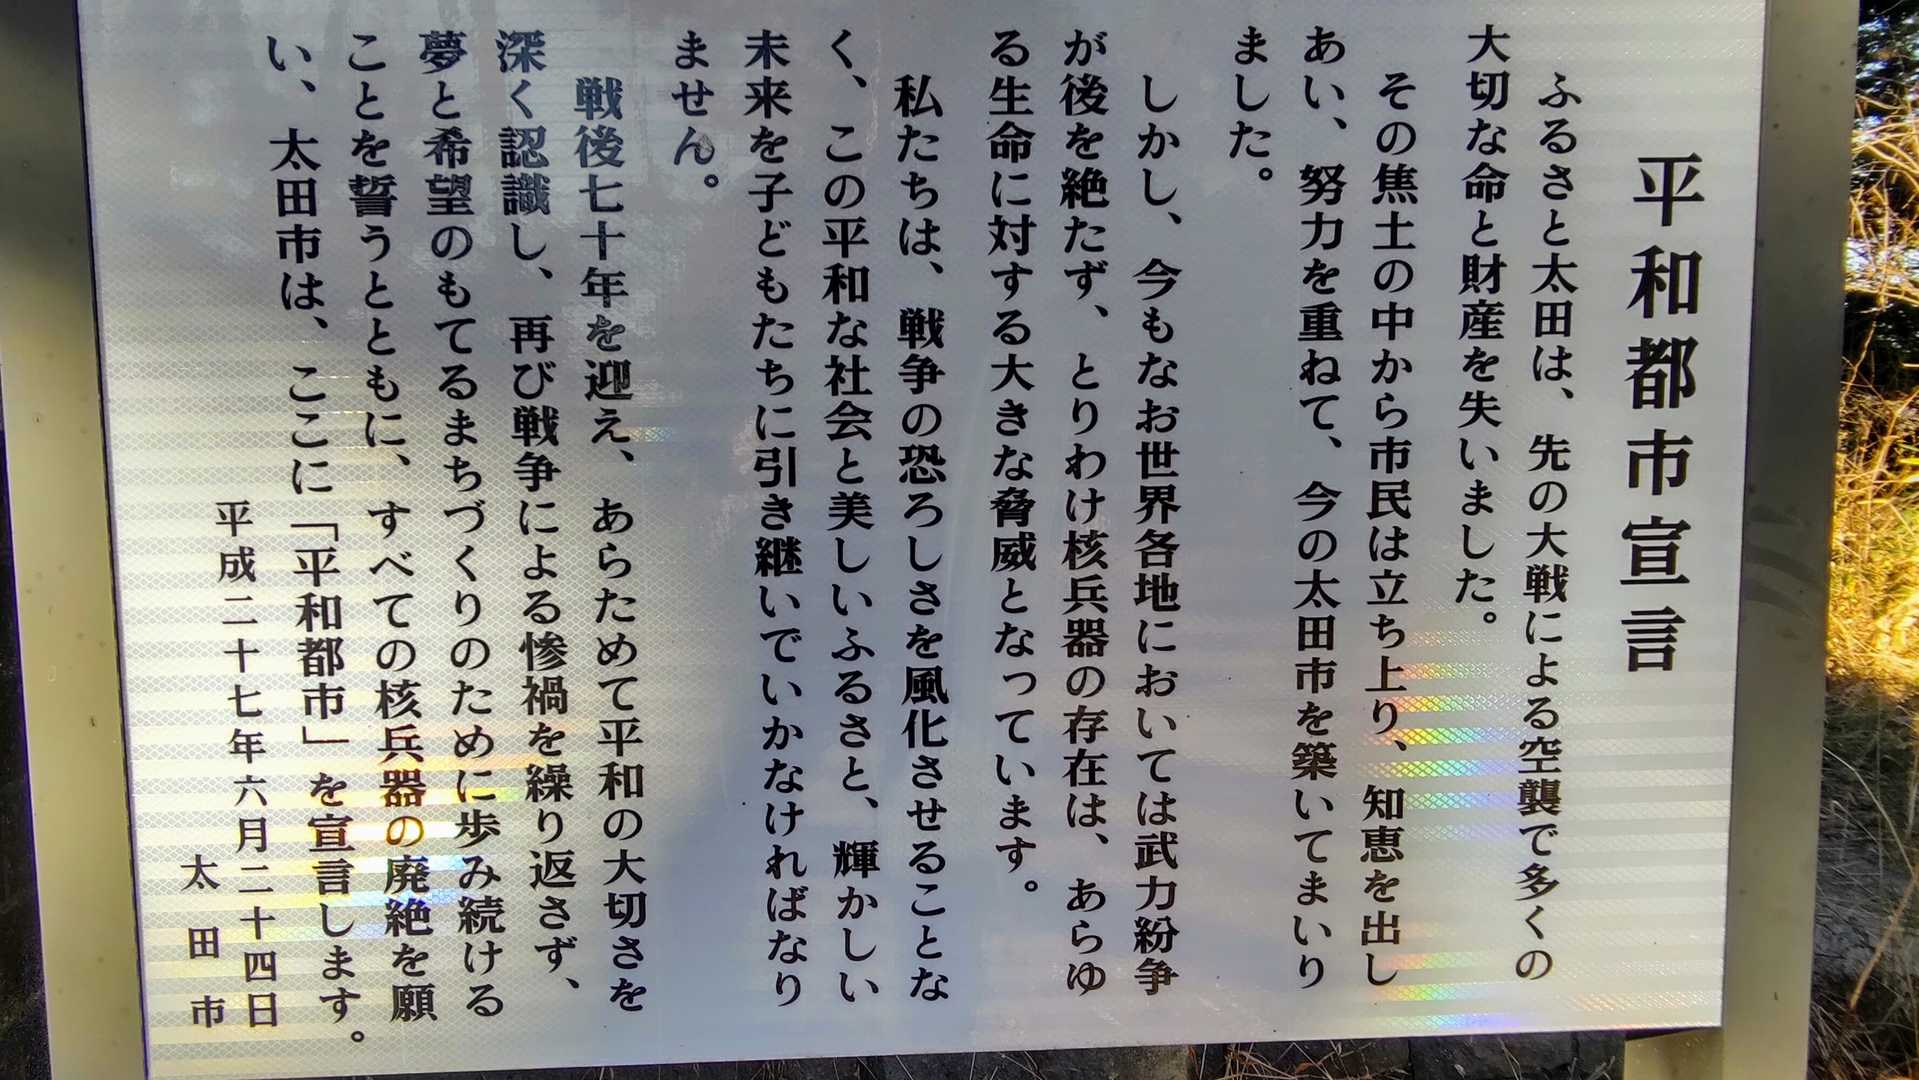 平和都市宣言
ふるさと太田は、先の大戦による空襲で多くの
大切な命と財産を失いました。
その焦土の中から市民は立ち上り、知恵を出し
あい、努力を重ねて、今の太田市を築いてまいり
ました。
しかし、今もなお世界各地においては武力紛争
が後を絶たず、とりわけ核兵器の存在は、あらゆ
る生命に対する大きな脅威となっています。
私たちは、戦争の恐ろしさを風化させることな
く、この平和な社会と美しいふるさと、輝かしい
未来を子どもたちに引き継いでいかなければなり
ません。
戦後七十年を迎え、あらためて平和の大切さを
深く認識し、再び戦争による惨禍を繰り返さず、
夢と希望のもてるまちづくりのために歩み続ける
ことを誓うとともに、すべての核兵器の廃絶を願
い、太田市は、ここに「平和都市」を宣言します。
平成二十七年六月二十四日
太田市